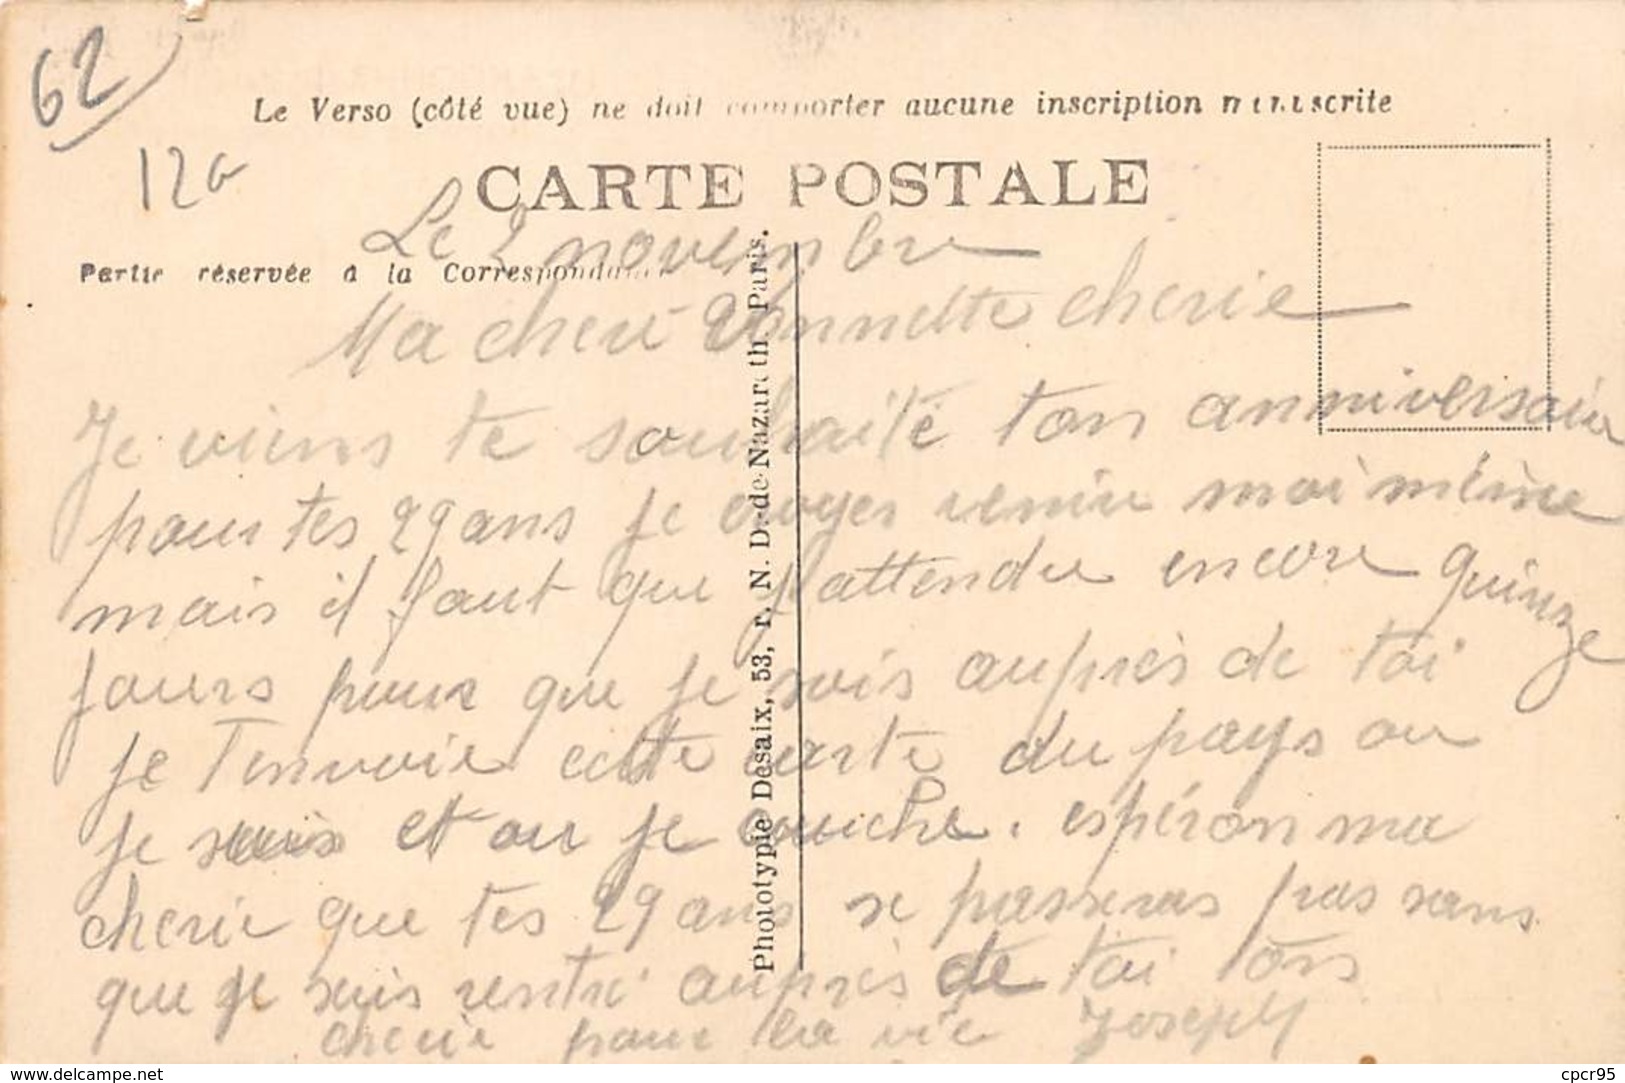 62
12a
Le Verso (côté vue) ne doit comporter aucune inscription manuscrite
CARTE POSTALE
Partie réservée à la Correspondance
Le 2 novembre
Ma cheré Vonnette cherie
Je viens te souhaité ton anniversaire
pour tes 29 ans je croyer venir moi même
mais il faut que j'attendre encore quinze
jours pour que je sois auprès de toi
je T'envoie cette carte du pays ou
je suis et ou je couche. espéron ma
cherie que tes 29 ans se passeras pas sans
que je suis rentré auprès de toi ton
cherie pour la vie Joseph
Phototypie Desaix, 53, r. N. D.-de-Nazareth. Paris.
cpcr95